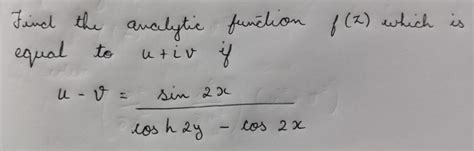 Find the analytic function f(z) which is
equal to u + iv if
u - v = sin 2x
cos h 2y - cos 2x